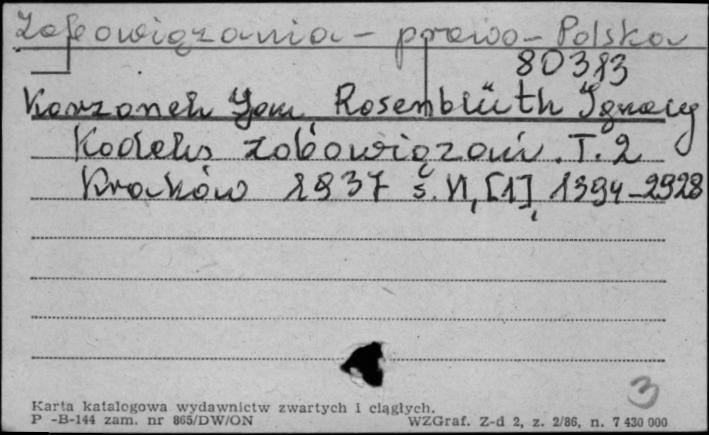 Zobowiązania - prawo - Polska
80313
Korzonek Jan, Rosenblüth Ignacy
Kodeks zobowiązań. T. 2
Kraków 1937 s. VI, [1], 1394-2928
3
Karta katalogowa wydawnictw zwartych i ciągłych.
P -B-144 zam. nr 865/DW/ON WZGraf. Z-d 2, z. 2/86, n. 7 430 000